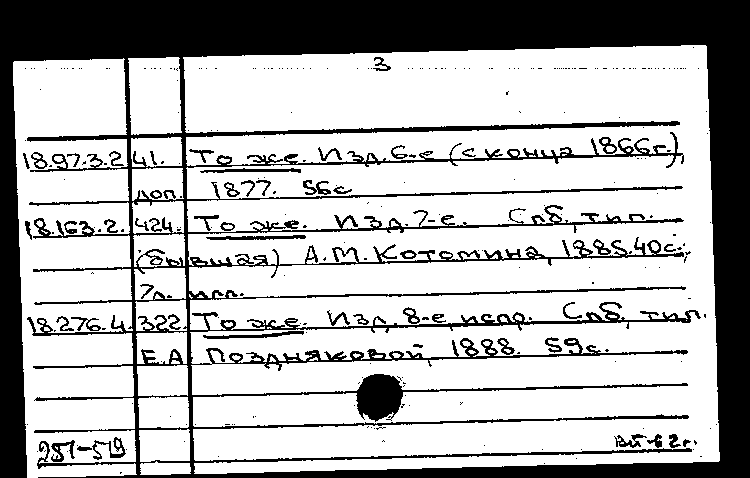 3
18.97.3.2 41. То же. Изд. 6-е (с конца 1866г.),
доп. 1877. 56с
18.163.2. 424. То же. Изд. 7-е. Спб, тип.
(бывшая) А.М. Котомина, 1885. 40с.,
7л. илл.
18.276.4. 322. То же. Изд. 8-е, испр. Спб, тип.
Е.А. Поздняковой, 1888. 59с.
281-519
62г.